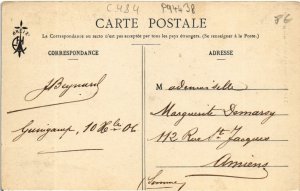 C. 484 P94438
86
CARTE POSTALE
La Correspondance au recto n'est pas acceptée par tous les pays étrangers. (Se renseigner à la Poste.)
CORRESPONDANCE
ADRESSE
J Beynard
Guingamp, 10 Xbre 06
Mademoiselle
Marguerite Demarsy
112 Rue St Jacques
Amiens
Somme